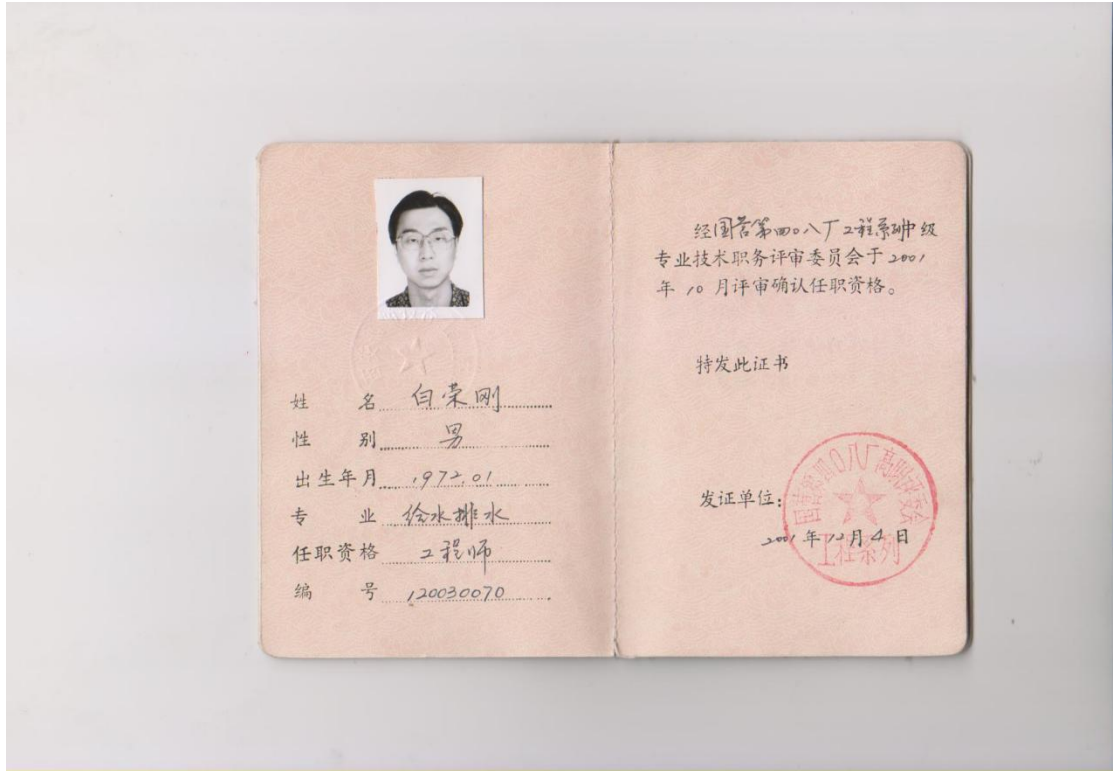 姓 名 白荣刚
性 别 男
出生年月 1972.01
专 业 给水排水
任职资格 工程师
编 号 120030070
经国营第四〇八厂工程系列中级
专业技术职务评审委员会于2001
年10月评审确认任职资格。
特发此证书
发证单位:
2001年12月4日
国营第四〇八厂高职评委会
工程系列